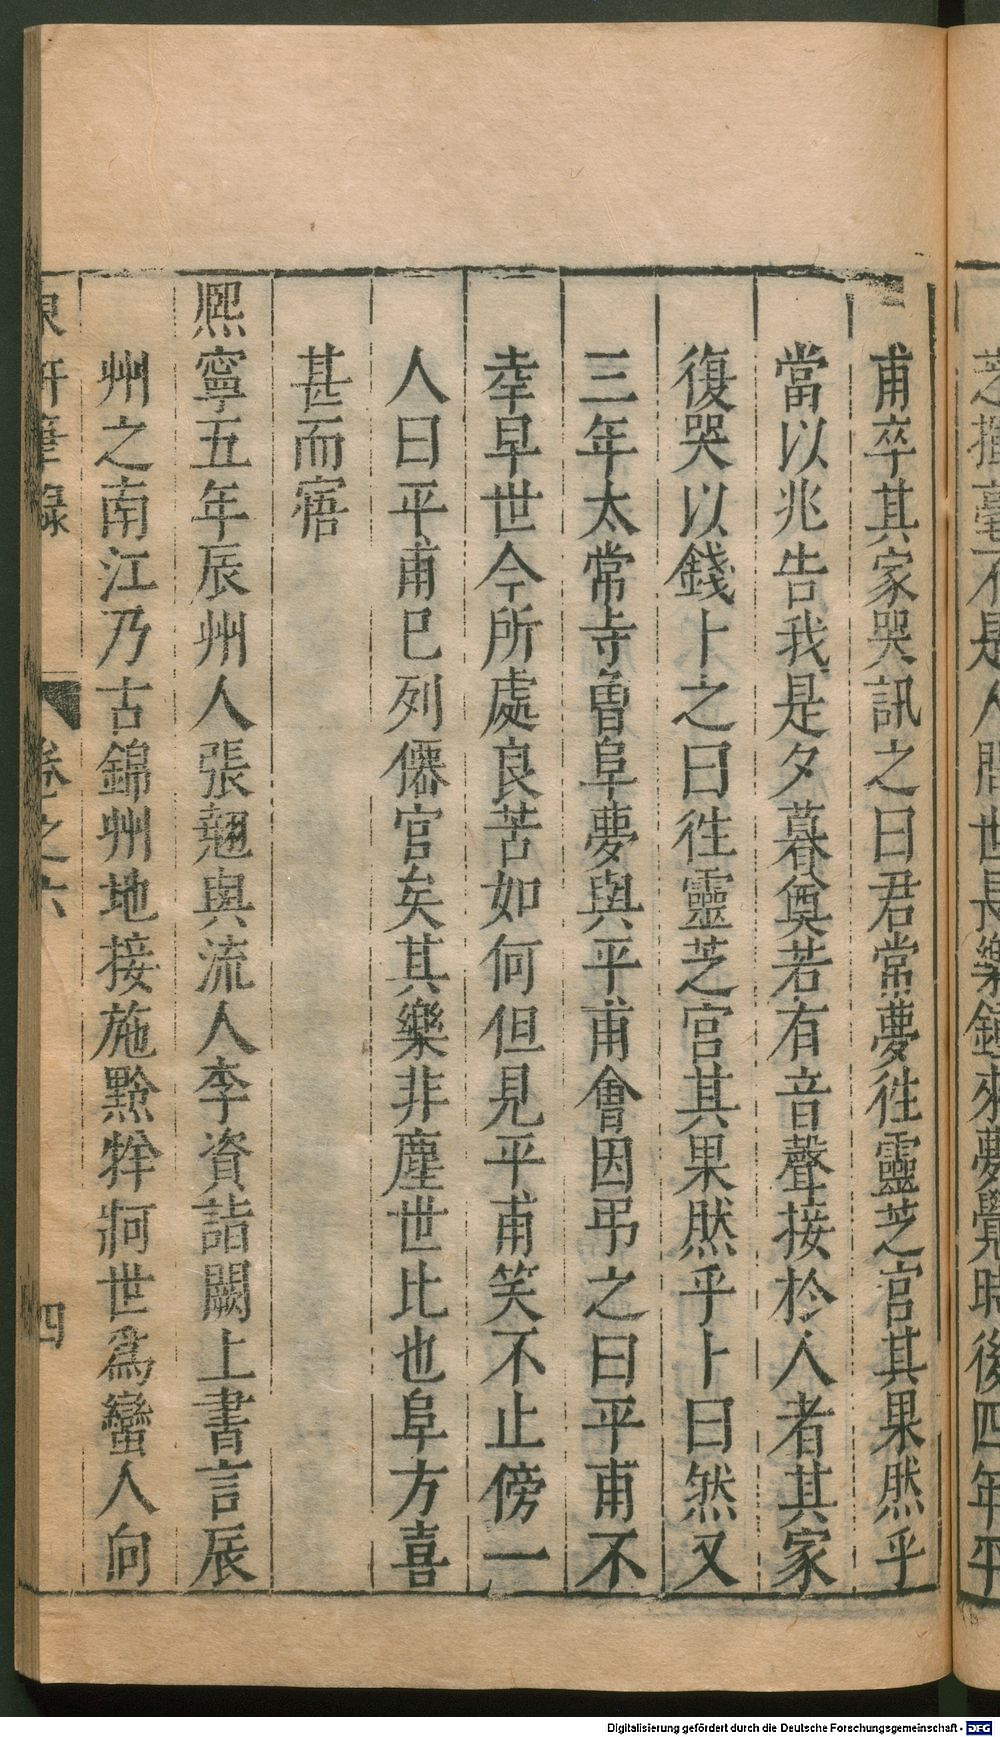 芝揮毫不是人間世長樂鐘來夢覺時後四年平
甫卒其家哭訊之曰君常夢徃靈芝宮其果然乎
當以兆告我是夕暮奠若有音聲接於人者其家
復哭以錢卜之曰徃靈芝宮其果然乎卜曰然又
三年太常寺魯阜夢與平甫會因弔之曰平甫不
幸早世今所處良苦如何但見平甫笑不止傍一
人曰平甫已列僊官矣其樂非塵世比也阜方喜
甚而寤
熙寧五年辰州人張翹與流人李資詣闕上書言辰
州之南江乃古錦州地接施黔牂牁世爲蠻人向
東軒筆錄 卷之六 四
Digitalisierung gefördert durch die Deutsche Forschungsgemeinschaft - DFG